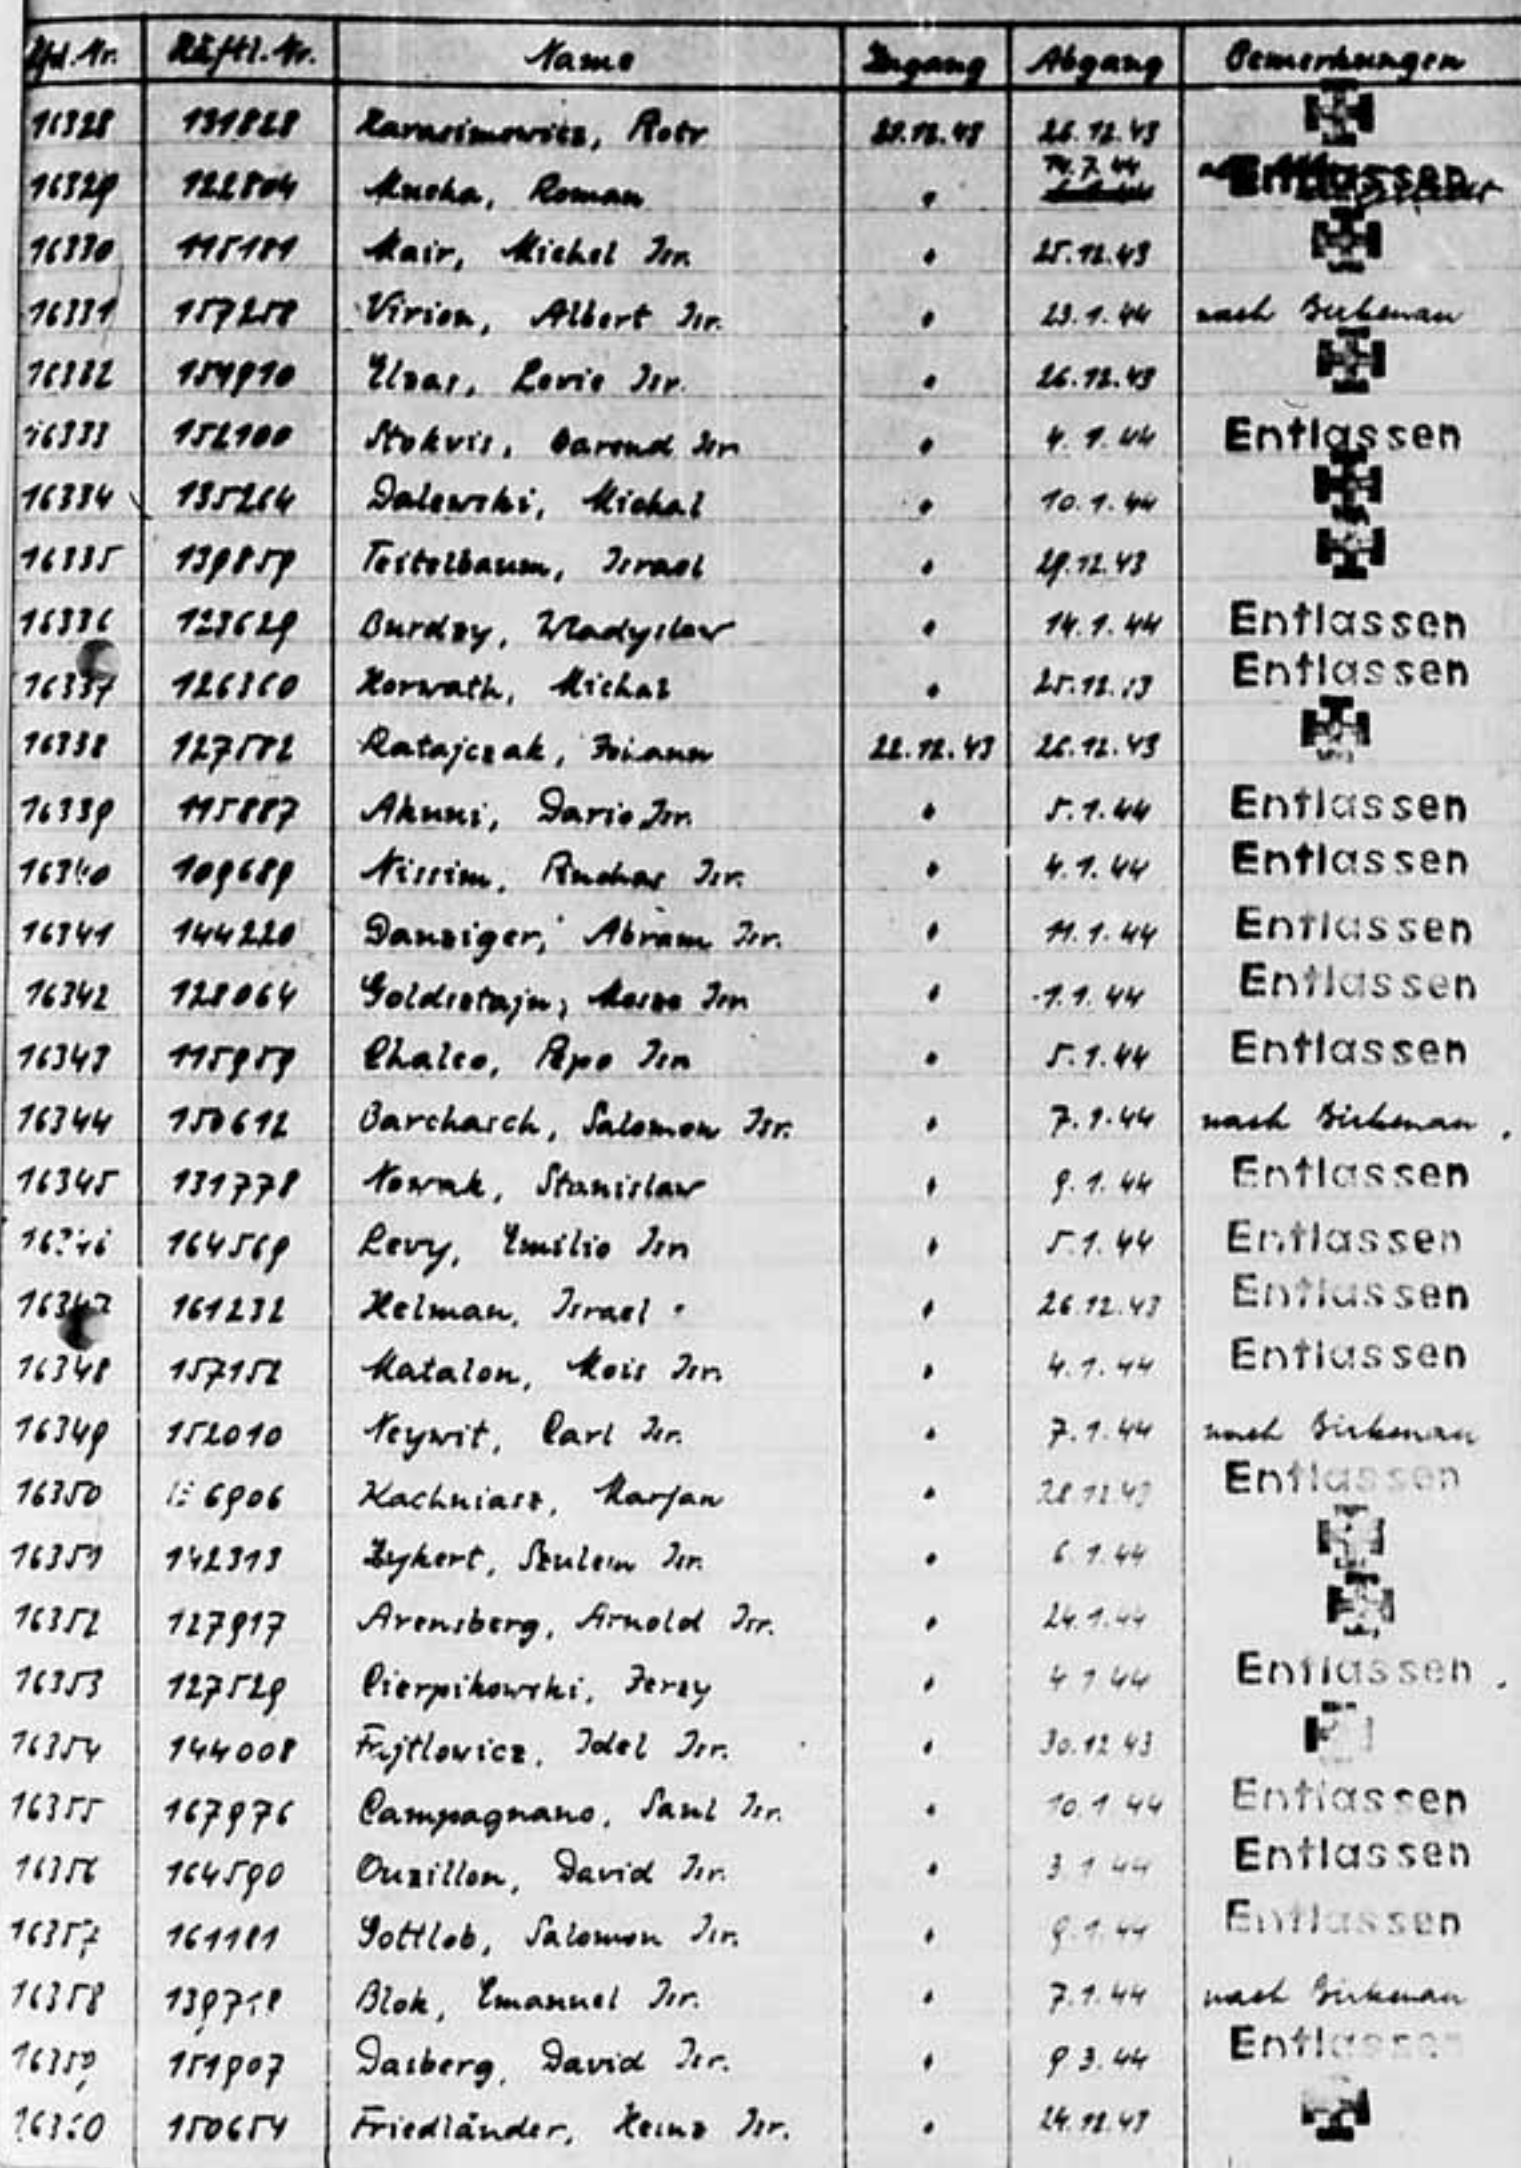 Lfd. Nr. Häftl. Nr. Name Zugang Abgang Bemerkungen
16328 131828 Harasimowicz, Piotr 21.12.43 26.12.43
16329 122804 Mucha, Roman " 14.7.44 Entlassen
16330 115181 Mair, Michel Isr. " 25.12.43
16331 157258 Virion, Albert Isr. " 23.1.44 nach Birkenau
16332 Elzas, Levie Isr. " 26.12.43
16333 152100 Stokvis, Barend Isr. " 4.1.44 Entlassen
16334 135264 Dalewski, Michal " 10.1.44
16335 139859 Teitelbaum, Israel " 29.12.43
16336 123629 Burdzy, Wladyslaw " 14.1.44 Entlassen
16337 126360 Horwath, Michal " 25.12.43 Entlassen
16338 127582 Ratajczak, 22.12.43 26.12.43
16339 115887 Akuni, Dario Isr. " 5.1.44 Entlassen
16340 109689 Nissim, Isr. " 4.1.44 Entlassen
16341 144220 Danziger, Abram Isr. " 11.1.44 Entlassen
16342 128064 Goldsztajn, Mosze Isr. " 1.1.44 Entlassen
16343 115959 Chaleo, Pepo Isr. " 5.1.44 Entlassen
16344 150612 Barchasch, Salomon Isr. " 7.1.44 nach Birkenau
16345 131778 Nowak, Stanislaw " 9.1.44 Entlassen
16346 164569 Levy, Emilio Isr. " 5.1.44 Entlassen
16347 161232 Helman, Israel " 26.12.43 Entlassen
16348 157152 Matalon, Mois Isr. " 4.1.44 Entlassen
16349 152010 Neywit, Carl Isr. " 7.1.44 nach Birkenau
16350 Kachniasz, Marjan " 28.12.43 Entlassen
16351 142313 Zykert, Szulem Isr. " 6.1.44
16352 127917 Arensberg, Arnold Isr. " 24.1.44
16353 127529 Cierpikowski, Jerzy " 4.1.44 Entlassen
16354 144008 Fajtlowicz, Idel Isr. " 30.12.43
16355 167976 Campagnano, Saul Isr. " 10.1.44 Entlassen
16356 164590 Ouzillon, David Isr. " 3.1.44 Entlassen
16357 161181 Gottlob, Salomon Isr. " 9.1.44 Entlassen
16358 139718 Blok, Emanuel Isr. " 7.1.44 nach Birkenau
16359 151907 Dasberg, David Isr. " 9.3.44 Entlassen
16360 150654 Friedländer, Heinz Isr. " 24.12.43